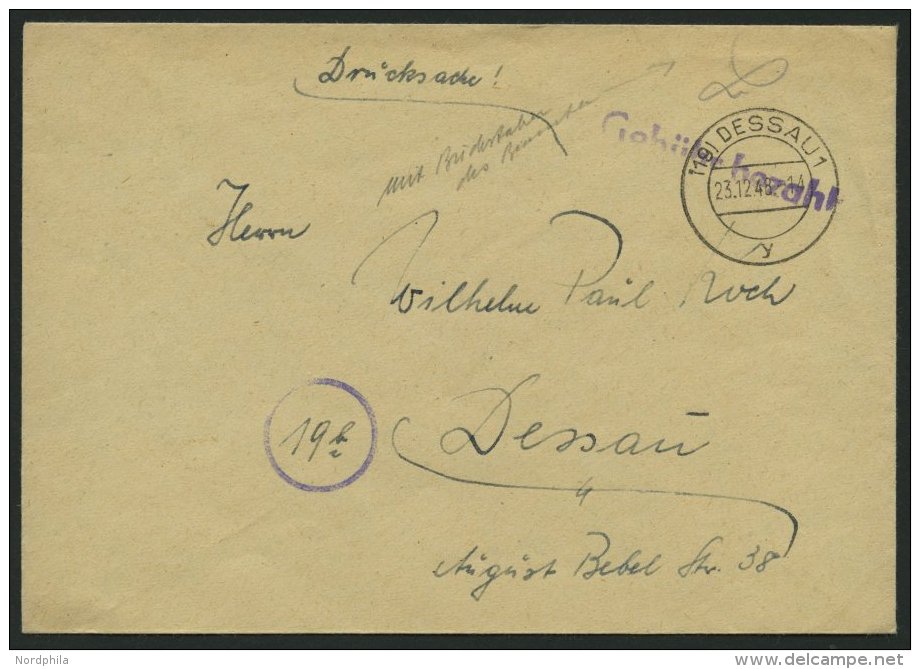 Drucksache!
mit Buchstaben
des Beamten
Gebühr bezahlt
(19) DESSAU 1
23.12.48 14
Herrn
Wilhelm Paul Koch
19b
Dessau
4
August Bebel Str. 38
Nordphila
delcampe.net